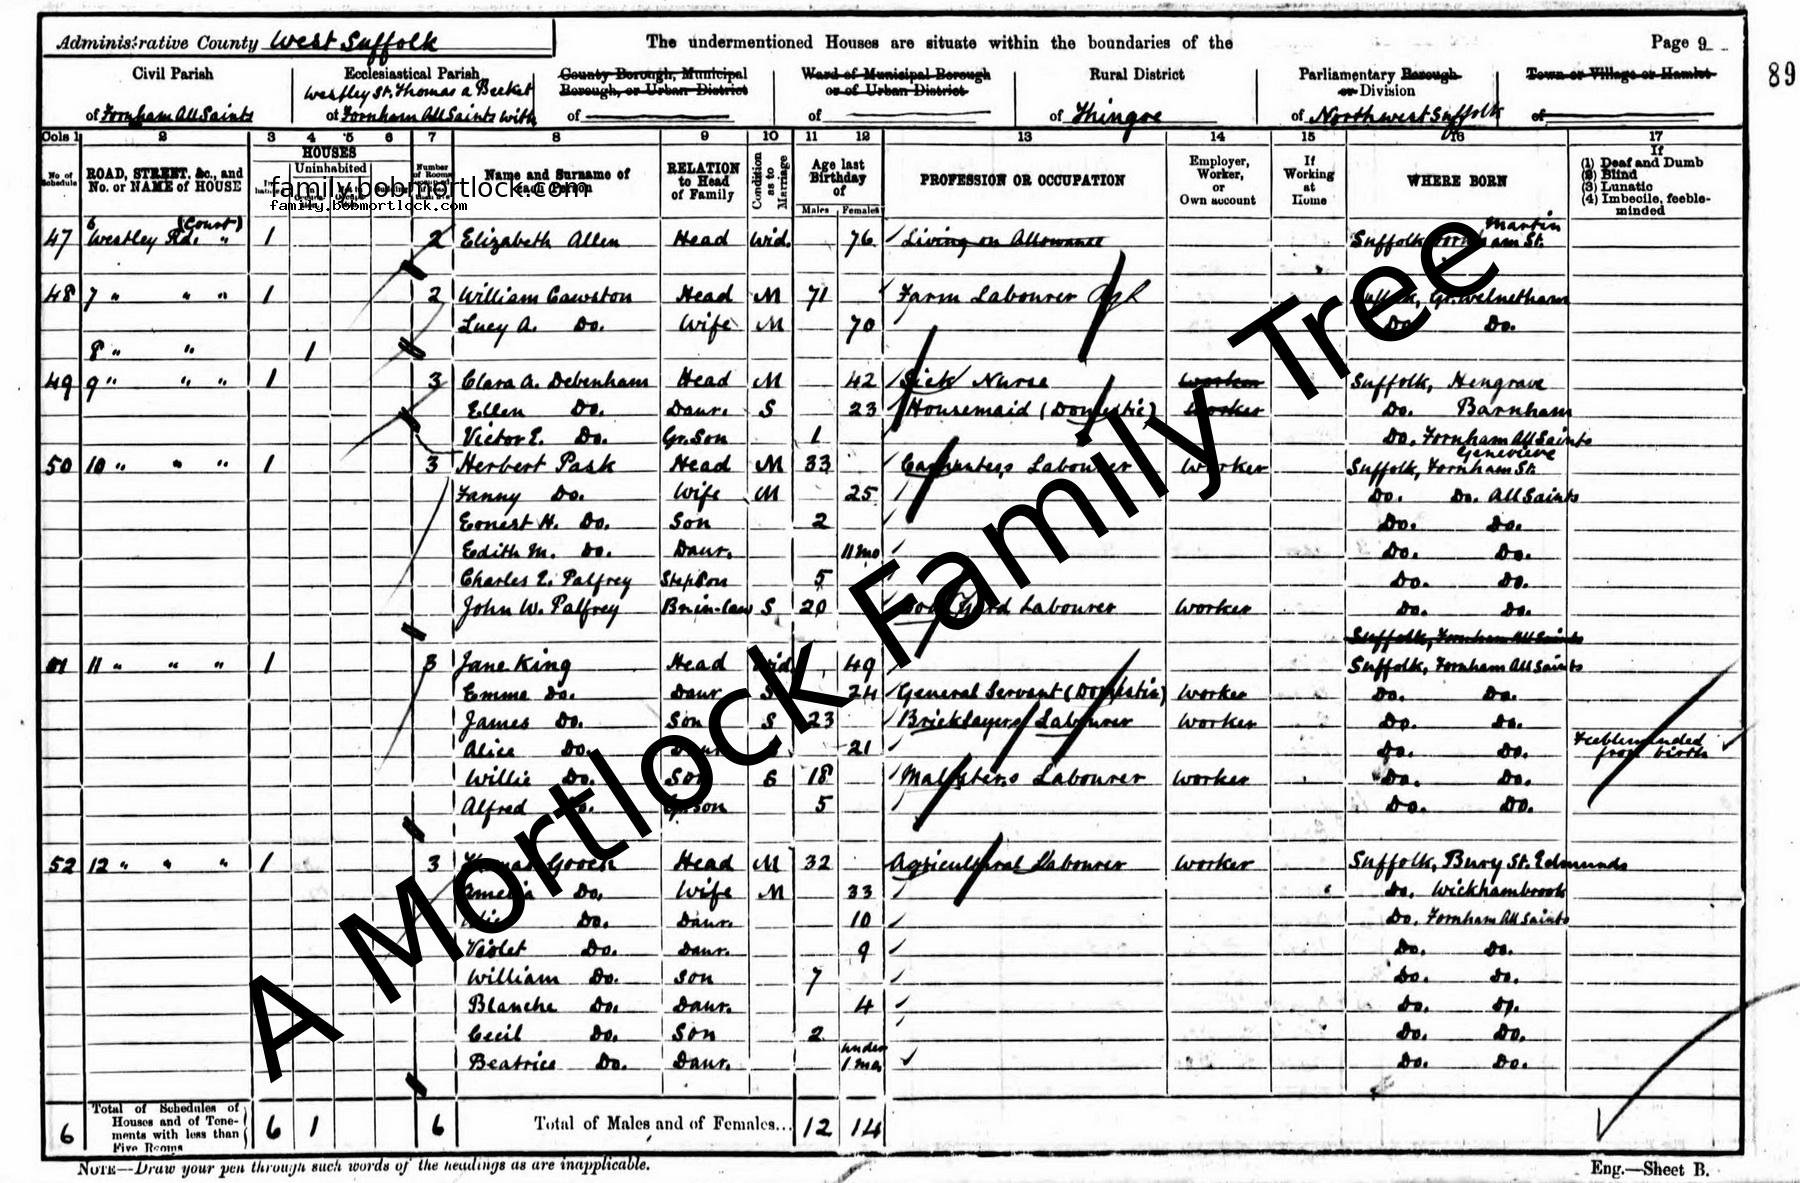 Administrative County West Suffolk
The undermentioned Houses are situate within the boundaries of the
Page 9
89
Civil Parish
of Fornham All Saints
Ecclesiastical Parish
Westley St. Thomas a Becket
of Fornham All Saints with
County Borough, Municipal Borough, or Urban District
of
Ward of Municipal Borough or of Urban District
of
Rural District
of Thingoe
Parliamentary Borough or Division
of Northwest Suffolk
Town or Village or Hamlet
of
Cols 1 2 3 4 5 6 7 8 9 10 11 12 13 14 15 16 17
No. of Schedule
ROAD, STREET, &c., and No. or NAME of HOUSE
HOUSES
Uninhabited
Name and Surname of each Person
RELATION to Head of Family
Condition as to Marriage
Age last Birthday of
Males Females
PROFESSION OR OCCUPATION
Employer, Worker, or Own account
If Working at Home
WHERE BORN
If
(1) Deaf and Dumb
(2) Blind
(3) Lunatic
(4) Imbecile, feeble-minded
family.bobmortlock.com
family.bobmortlock.com
47 6 Westley Rd. " (Court) 1 2 Elizabeth Allen Head Wid. 76 Living on Allowance Suffolk, Fornham St. Martin
48 7 " " " 1 2 William Cawston Head M 71 Farm Labourer Agl Suffolk, Gt. Welnetham
Lucy A. Do. Wife M 70 Do. Do.
8 " " 1
49 9 " " " 1 3 Clara A. Debenham Head M 42 Sick Nurse Worker Suffolk, Hengrave
Ellen Do. Daur. S 23 Housemaid (Domestic) Worker Do. Barnham
Victor E. Do. Gr. Son 1 Do. Fornham All Saints
50 10 " " " 1 3 Herbert Pask Head M 33 Carpenter's Labourer Worker Suffolk, Fornham St. Genevieve
Fanny Do. Wife M 25 Do. Do. All Saints
Ernest H. Do. Son 2 Do. Do.
Edith M. Do. Daur. 11 mo Do. Do.
Charles E. Palfrey Step Son 5 Do. Do.
John W. Palfrey Br-in-law S 20 Yard Labourer Worker Do. Do.
Suffolk, Fornham All Saints
11 " " " 1 3 Jane King Head Wid 49 Suffolk, Fornham All Saints
Emma Do. Daur S 24 General Servant (Domestic) Worker Do. Do.
James Do. Son S 23 Bricklayers Labourer Worker Do. Do.
Alice Do. Daur 21 Do. Do. Feebleminded from birth
Willie Do. Son S 18 Maltsters Labourer Worker Do. Do.
Alfred Do. Gr. Son 5 Do. Do.
52 12 " " " 1 3 Thomas Gooch Head M 32 Agricultural Labourer Worker Suffolk, Bury St. Edmunds
Amelia Do. Wife M 33 Do. Wickhambrook
Do. Daur. 10 Do. Fornham All Saints
Violet Do. Daur. 9 Do. Do.
William Do. Son 7 Do. Do.
Blanche Do. Daur. 4 Do. Do.
Cecil Do. Son 2 Do. Do.
Beatrice Do. Daur. under 1 mo Do. Do.
6 Total of Schedules of Houses and of Tenements with less than Five Rooms 6 1 6 Total of Males and of Females... 12 14
NOTE—Draw your pen through such words of the headings as are inapplicable.
Eng.—Sheet B.
A Mortlock Family Tree